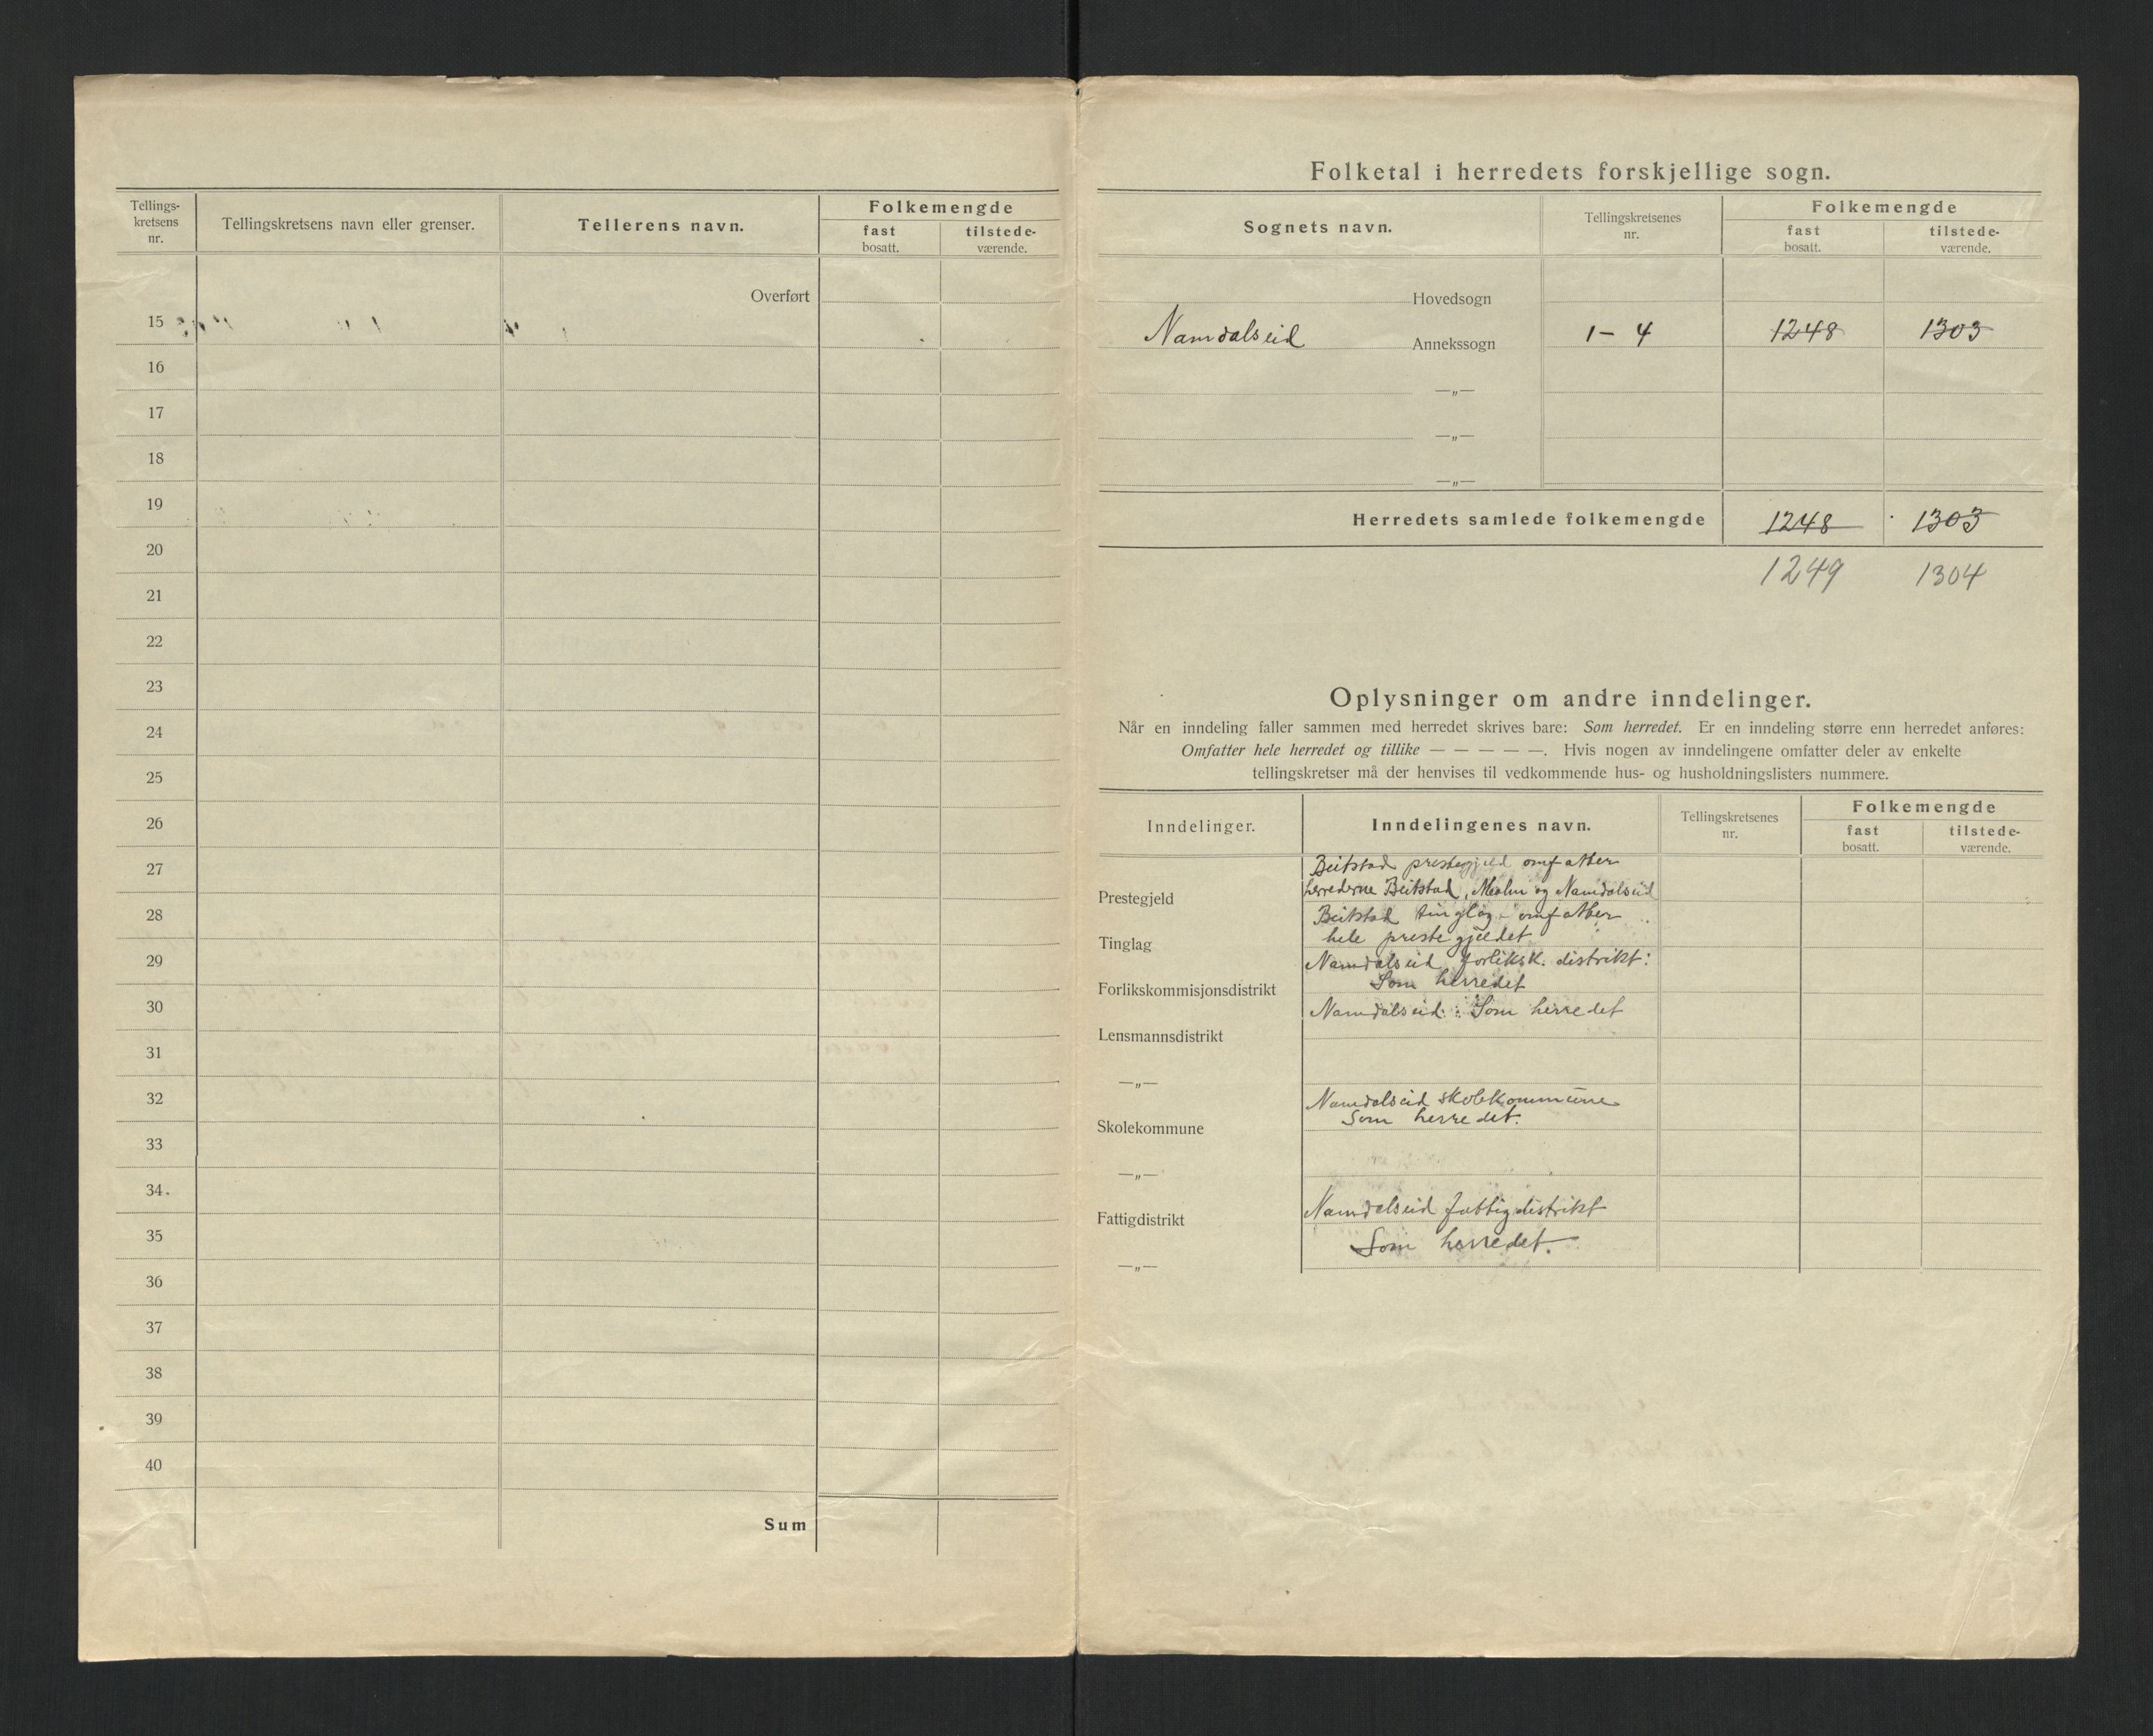 Tellings-
kretsens
nr.
Tellingskretsens navn eller grenser.
Tellerens navn.
Folkemengde
fast
bosatt.
tilstede-
værende.
Overført
15
16
17
18
19
20
21
22
23
24
25
26
27
28
29
30
31
32
33
34.
35
36
37
38
39
40
Sum
Folketal i herredets forskjellige sogn.
Sognets navn.
Tellingskretsenes
nr.
Folkemengde
fast
bosatt.
tilstede-
værende.
Hovedsogn
Namdalseid Annekssogn 1-4 1248 1303
—„—
—„—
—„—
Herredets samlede folkemengde 1248 1303
1249 1304
Oplysninger om andre inndelinger.
Når en inndeling faller sammen med herredet skrives bare: Som herredet. Er en inndeling større enn herredet anføres:
Omfatter hele herredet og tillike — — — — —. Hvis nogen av inndelingene omfatter deler av enkelte
tellingskretser må der henvises til vedkommende hus- og husholdningslisters nummere.
Inndelinger.
Inndelingenes navn.
Tellingskretsenes
nr.
Folkemengde
fast
bosatt.
tilstede-
værende.
Beitstad prestegjeld omfatter
herrederne Beitstad, Malm og Namdalseid
Prestegjeld
Beitstad tinglag - omfatter
hele prestegjeldet
Tinglag
Namdalseid forliksk. distrikt:
Som herredet
Forlikskommisjonsdistrikt
Namdalseid: Som herredet
Lensmannsdistrikt
—„—
Namdalseid skolekommune
Som herredet.
Skolekommune
—„—
Namdalseid fattigdistrikt
Fattigdistrikt
Som herredet.
—„—